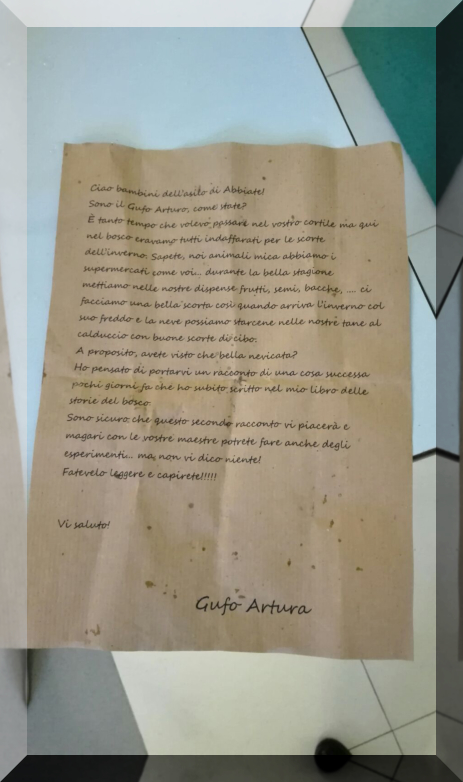 Ciao bambini dell'asilo di Abbiate!
Sono il Gufo Arturo, come state?
È tanto tempo che volevo passare nel vostro cortile ma qui
nel bosco eravamo tutti indaffarati per le scorte
dell'inverno. Sapete, noi animali mica abbiamo i
supermercati come voi... durante la bella stagione
mettiamo nelle nostre dispense frutti, semi, bacche, .... ci
facciamo una bella scorta così quando arriva l'inverno col
suo freddo e la neve possiamo starcene nelle nostre tane al
calduccio con buone scorte di cibo.
A proposito, avete visto che bella nevicata?
Ho pensato di portarvi un racconto di una cosa successa
pochi giorni fa che ho subito scritto nel mio libro delle
storie del bosco.
Sono sicuro che questo secondo racconto vi piacerà e
magari con le vostre maestre potrete fare anche degli
esperimenti... ma non vi dico niente!
Fatevelo leggere e capirete!!!!!
Vi saluto!
Gufo Artura